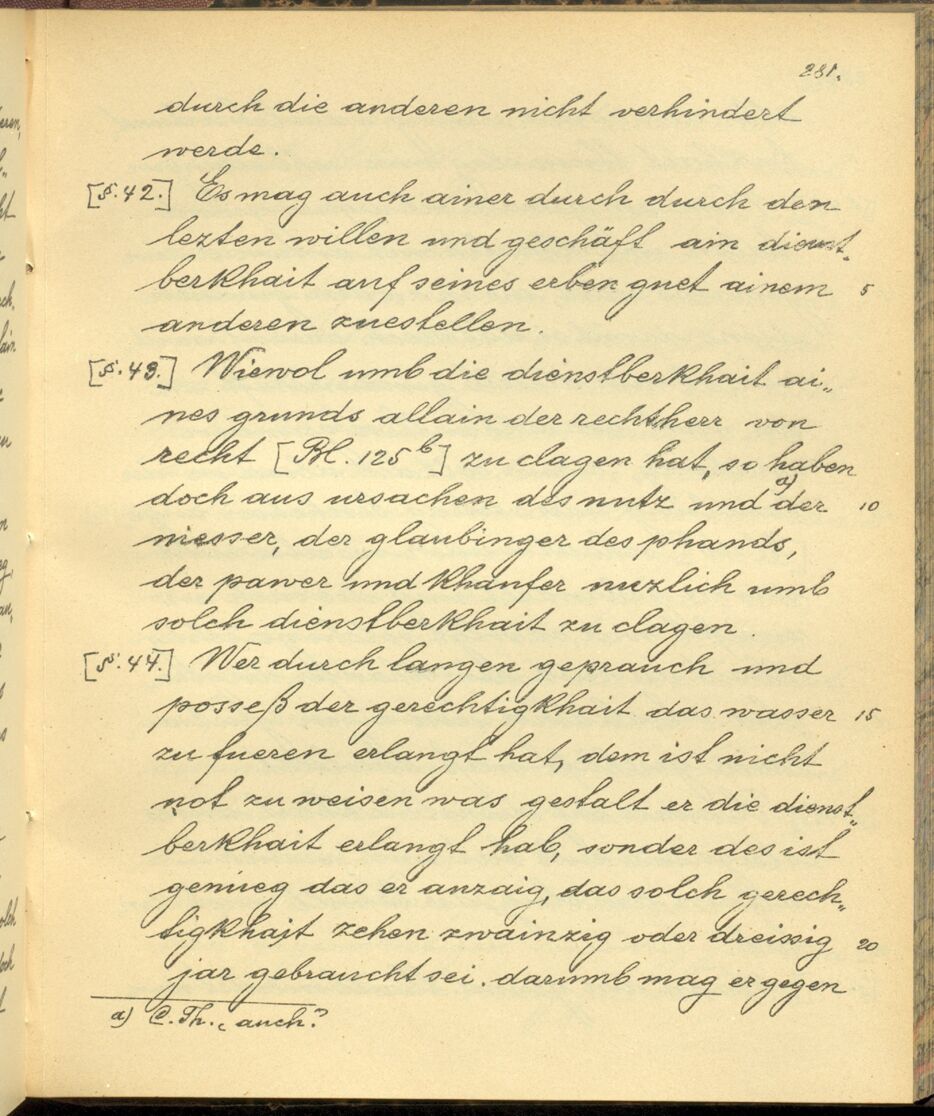 281.
durch die anderen nicht verhindert
werde.
[§. 42.] Es mag auch ainer durch durch den
lezten willen und geschäft ain dienst„
berkhait auf seines erben guet ainem 5
anderen zuestellen.
[§. 43.] Wiewol umb die dienstberkhait ai„
nes grunds allain der rechtherr von
recht [Bl. 125b] zu clagen hat, so haben
doch aus ursachen des nutz und a) der 10
niesser, der glaubinger des phands,
der pawer und khaufer nuzlich umb
solch dienstberkhait zu clagen.
[§. 44.] Wer durch langen geprauch und
posseß der gerechtigkhait das wasser 15
zu fueren erlangt hat, dem ist nicht
not zu weisen was gestalt er die dienst„
berkhait erlangt hab, sonder des ist
genueg das er anzaig, das solch gerech„
tigkhait zehen zwainzig oder dreissig 20
jar gebraucht sei. darumb mag er gegen
a) C. Th. „auch“?